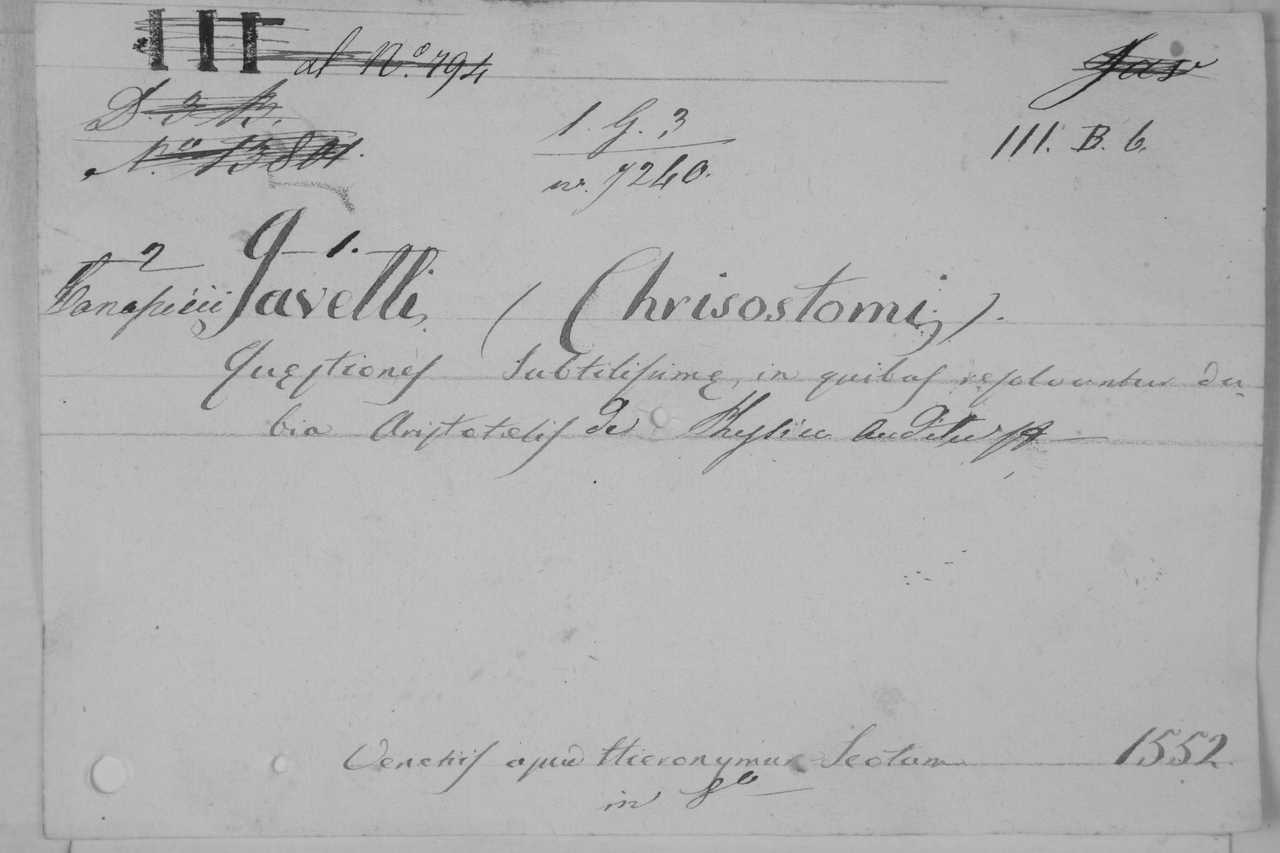 III ad N.º 794
Jav
D. 3 B.
N.º 13801.
1. G. 3
nr. 7240.
III. B. 6.
2 1.
Canapicii Javelli, (Chrisostomi,).
Quęstiones Subtilissimę, in quibus resolvuntur du-
bia Aristotelis de Physico auditu
Venetiis apud Hieronymum Scotum 1552
in 8º